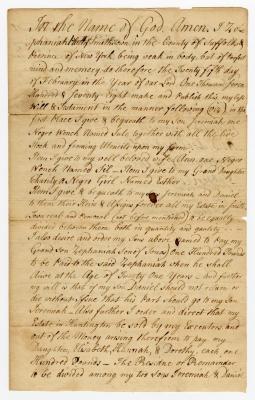 In the Name of God, Amen. I Ze-
phaniah Platt of Smithtown, in the County of Suffolk &
Province of New York being weak in body, but of perfect
mind and memory do therefore, this Twenty fifth day
of February in the Year of our Lord One Thousand Seven
Hundred & Seventy Eight make and Publish this my last
Will & Testament in the manner following (Viz) In the
first place I give & bequeath to my Son Jeremiah one
Negro Wench Named Sale together with all the live
Stock and farming Utensils upon my farm.
Item I give to my well beloved wife Ann one Negro
Wench Named Sil - Item I give to my Grand Daughter
Charity a Negro Girl Named Esther
Item I give & bequeath to my Sons Jeremiah and Daniel
to them their Heirs & Assigns forever all my Estate in
both real and Personal (not before mentioned) to be equally
divided between them both in quantity and quality
I also direct and order my Sons above named to pay my
Grand Son Zephaniah of Jonas One Hundred Pounds
to be Paid to the said Zephaniah when he shall
Arive at the Age of Twenty One Years - and further
my will is that if my Son Daniel should not return or
die without issue that his Part should go to my Son
Jeremiah. Also further I order and direct that my
Estate in Huntington be sold by my Executors and
out of the Money arising therefrom to pay my
Daughters, Elizabeth, Hannah, & Dorothy, each one
Hundred Pounds - The Residue or Remainder
to be divided among my two Sons Jeremiah & Daniel